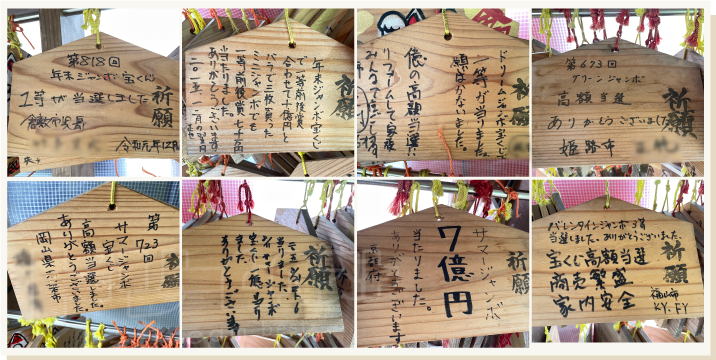 第818回
年末ジャンボ宝くじ
1等が当選しました
祈願
倉敷市
令和元年12月
年末ジャンボ宝くじ
で一等前後賞
合わせて十億円と
バラで三枚買った
ミニジャンボでも
一等前後賞
当たりました。
ありがとうございます
祈願
ドリームジャンボ宝くじ
一等が当りまして
願いがかないました。
億の高額当選
リフォームして家族
みんなで
祈願
第673回
グリーンジャンボ
高額当選
ありがとうございました
姫路市
祈願
第723回
サマージャンボ
宝くじ
高額当選しました。
ありがとうございました。
岡山県
祈願
当りました。
サマージャンボ
宝くじで一億当り
ました。
ありがとうございます
祈願
サマージャンボ
7億円
当たりました。
ありがとうございます
京都府
祈願
バレンタインジャンボ3等
当選しました。ありがとうございました。
宝くじ高額当選
商売繁盛
家内安全
福山市
KY.FY
祈願